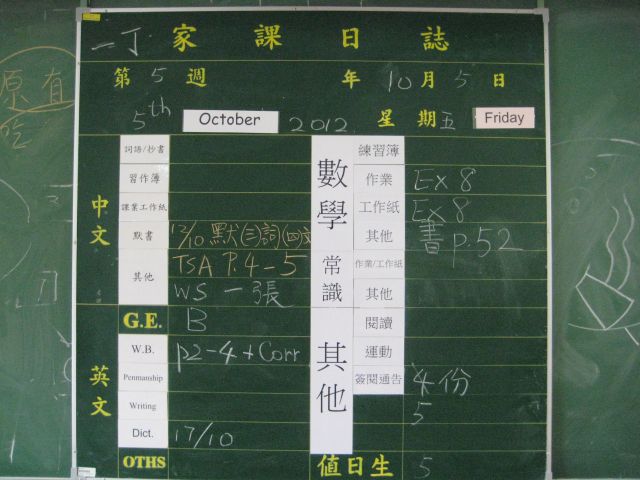 一丁 家課日誌
第 5 週 年 10 月 5 日
5th October 2012 星期五 Friday
中文
詞語/抄書
習作簿
課業工作紙
默書 12/10 默(三)詞(四)文
其他 TSA P.4-5
WS 一張
英文
G.E. B
W.B. p2-4 + Corr
Penmanship
Writing
Dict. 17/10
OTHS
數學
練習簿
作業 Ex 8
工作紙 Ex 8
其他 書 p.52
常識
作業/工作紙
其他
其他
閱讀
運動
簽閱通告 4份
5
值日生 5
原有